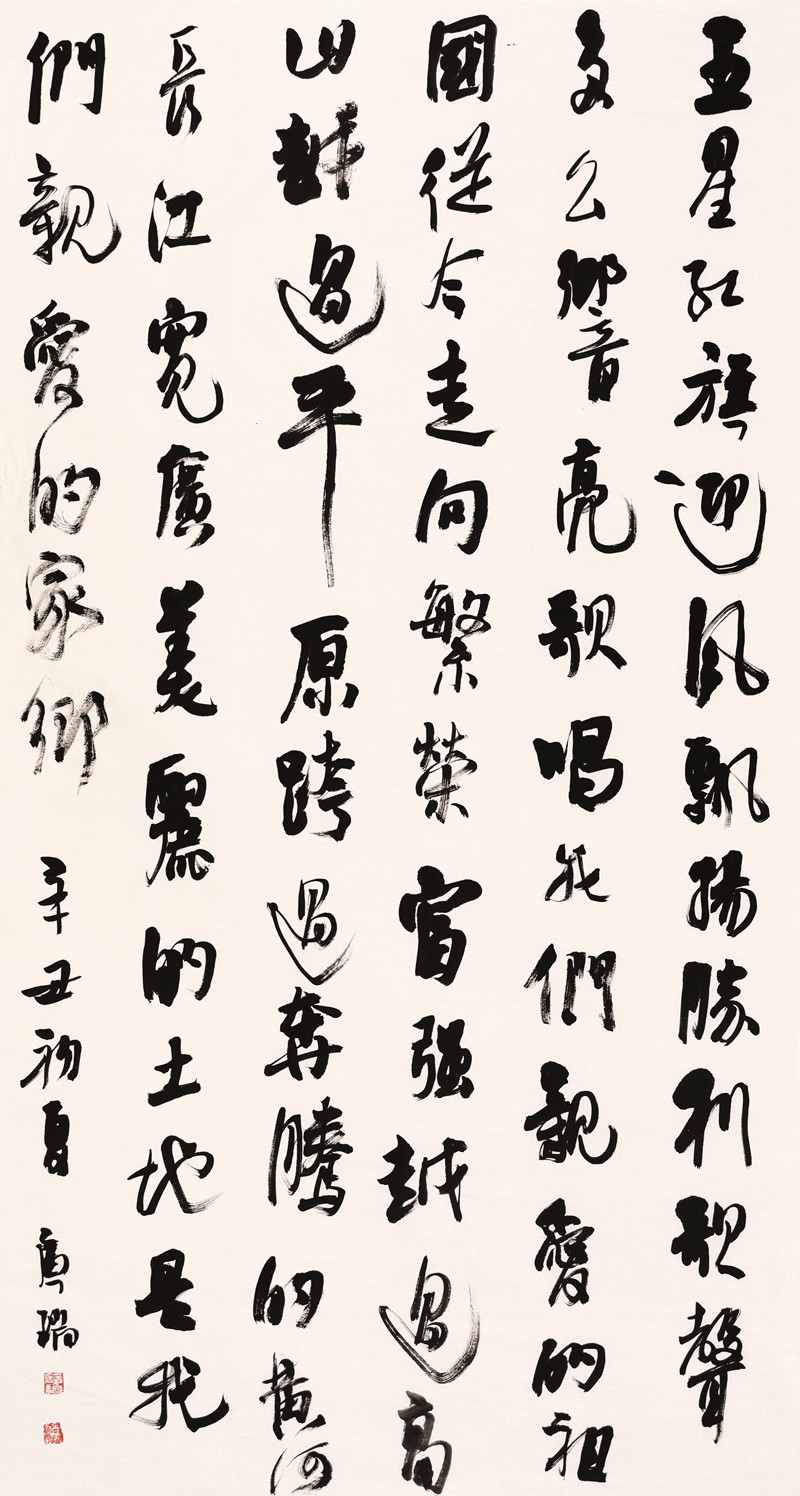 五星紅旗迎風飄揚勝利歌聲
多么響亮歌唱我們親愛的祖
國從今走向繁榮富强越過高
山越過平原跨過奔騰的黄河
長江寬廣美麗的土地是我
們親愛的家鄉 辛丑初夏